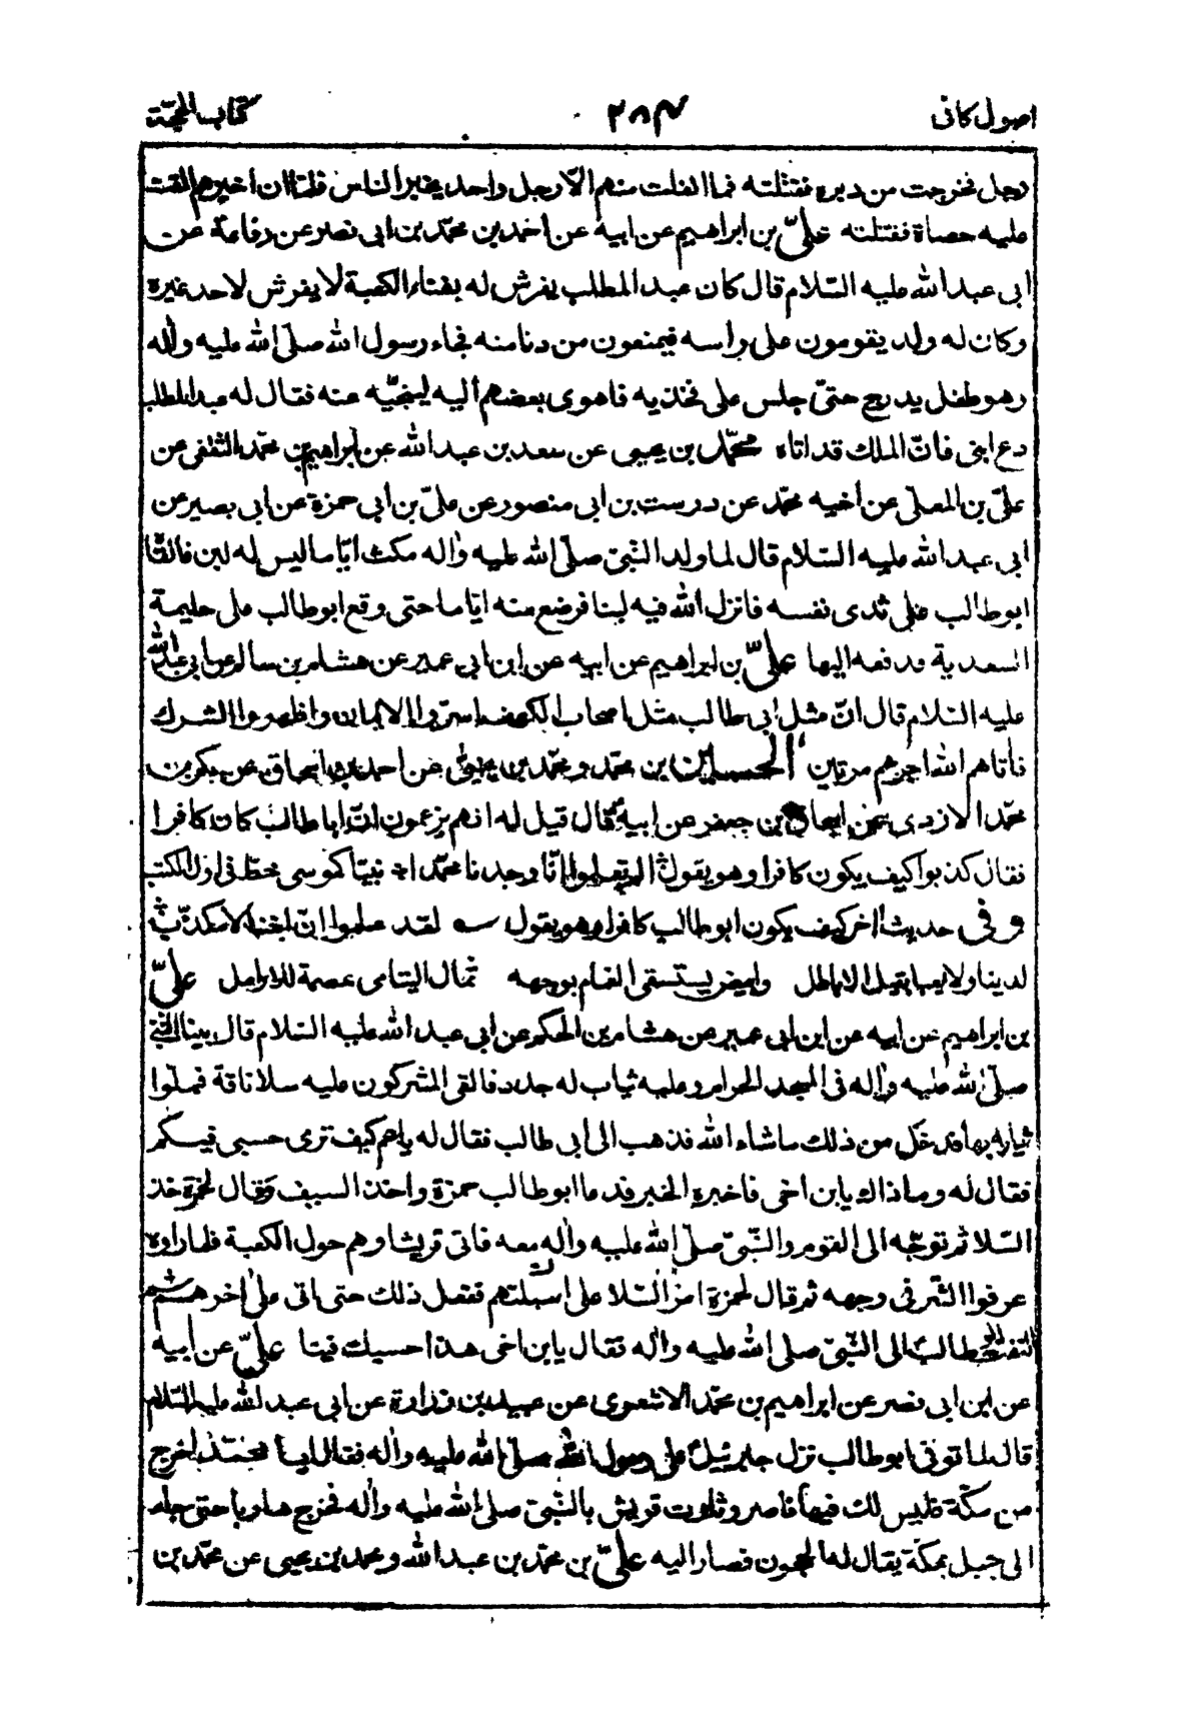 اصول كافى ٢٨٤ كتاب الحجّة
رجل فخرجت من دبره فقتلته فما انفلت منهم الّا رجل واحد يخبر الناس فلمّا ان اخبرهم القت
عليه حصاة فقتلته علىّ بن ابراهيم عن ابيه عن احمد بن محمّد بن ابى نصر عن رفاعة عن
ابى عبد الله عليه السّلام قال كان عبد المطلب يفرش له بفناء الكعبة لا يفرش لاحد غيره
وكان له ولد يقومون على راسه فيمنعون من دنا منه فجاء رسول الله صلّى الله عليه واٰله
وهو طفل يدرج حتىّ جلس على فخذيه فاهوى بعضهم اليه لينحيّه عنه فقال له عبد المطلب
دع ابنى فانّ الملك قد اتاه محمّد بن يحيى عن سعد بن عبد الله عن ابراهيم بن محمّد الثقفى عن
علىّ بن المعلّى عن اخيه محمّد عن درست بن ابى منصور عن علىّ بن ابى حمزة عن ابى بصير عن
ابى عبد الله عليه السّلام قال لما ولد النّبىّ صلّى الله عليه واٰله مكث ايّاما ليس له لبن فالقاه
ابو طالب على ثدى نفسه فانزل الله فيه لبنا فرضع منه ايّاما حتى وقع ابو طالب على حليمة
السعدية فدفعه اليها علىّ بن ابراهيم عن ابيه عن ابن ابى عمير عن هشام بن سالم عن ابى عبد الله
عليه السّلام قال انّ مثل ابى طالب مثل اصحاب الكهف اسرّوا الايمان واظهروا الشرك
فاٰتاهم الله اجرهم مرتين الحسين بن محمّد ومحمّد بن يحيى عن احمد بن اسحاق عن بكر بن
محمّد الازدى عن اسحاق بن جعفر عن ابيه قال قيل له انهم يزعمون انّ ابا طالب كان كافرا
فقال كذبوا كيف يكون كافرا وهو يقول الم تعلموا انّا وجدنا محمّدا نبيّا كموسى خطّ فى اوّل الكتب
و فى حديث اٰخر كيف يكون ابو طالب كافرا وهو يقول لقد علموا انّ ابننا لا مكذّب
لدينا ولا يعبا بقيل الاباطل وابيض يستسقى الغمام بوجهه ثمال اليتامى عصمة للارامل علىّ
بن ابراهيم عن ابيه عن ابن ابى عمير عن هشام بن الحكم عن ابى عبد الله عليه السّلام قال بينا النّبىّ
صلّى الله عليه واٰله فى المسجد الحرام وعليه ثياب له جدد فالقى المشركون عليه سلا ناقة فملّوا
ثيابه بها فدخل من ذلك ما شاء الله فذهب الى ابى طالب فقال له يا عم كيف ترى حسبى فيكم
فقال له وما ذاك يا بن اخى فاخبره الخبر فدعا ابو طالب حمزة واخذ السيف وقال لحمزة خذ
السّلا ثم توجّه الى القوم والنّبىّ صلّى الله عليه واٰله معه فاتى قريشا وهم حول الكعبة فلما راوه
عرفوا الشّر فى وجهه ثم قال لحمزة امرّ السّلا على اسبلتهم ففعل ذلك حتى اتى على اٰخرهم ثم
التفت ابو طالب الى النّبىّ صلى الله عليه واٰله فقال يا بن اخى هذا حسبك فينا علىّ عن ابيه
عن ابن ابى نصر عن ابراهيم بن محمّد الاشعرى عن عبيد بن زرارة عن ابى عبد الله عليه السّلام
قال لما توفى ابو طالب نزل جبرئيل على رسول الله صلّى الله عليه واٰله فقال يا محمّد اخرج
من مكّة فليس لك فيها ناصر وثارت قريش بالنّبىّ صلى الله عليه واٰله فخرج هاربا حتى جاء
الى جبل بمكّة يقال له الحجون فصار اليه علىّ بن محمّد بن عبد الله ومحمد بن يحيى عن محمّد بن